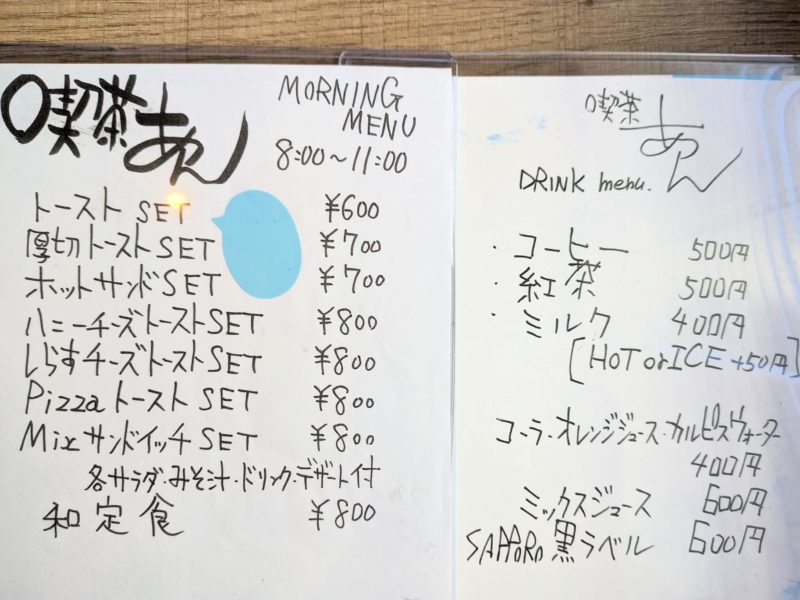 喫茶あん
MORNING
MENU
8:00～11:00
トースト SET ¥600
厚切トーストSET ¥700
ホットサンドSET ¥700
ハニーチーズトーストSET ¥800
しらすチーズトーストSET ¥800
Pizzaトースト SET ¥800
MixサンドイッチSET ¥800
各サラダ・みそ汁・ドリンク・デザート付
和定食 ¥800
喫茶
あん
DRINK menu.
・コーヒー 500円
・紅茶 500円
・ミルク 400円
[HOT or ICE +50円]
コーラ・オレンジジュース・カルピスウォーター
400円
ミックスジュース 600円
SAPPORO 黒ラベル 600円